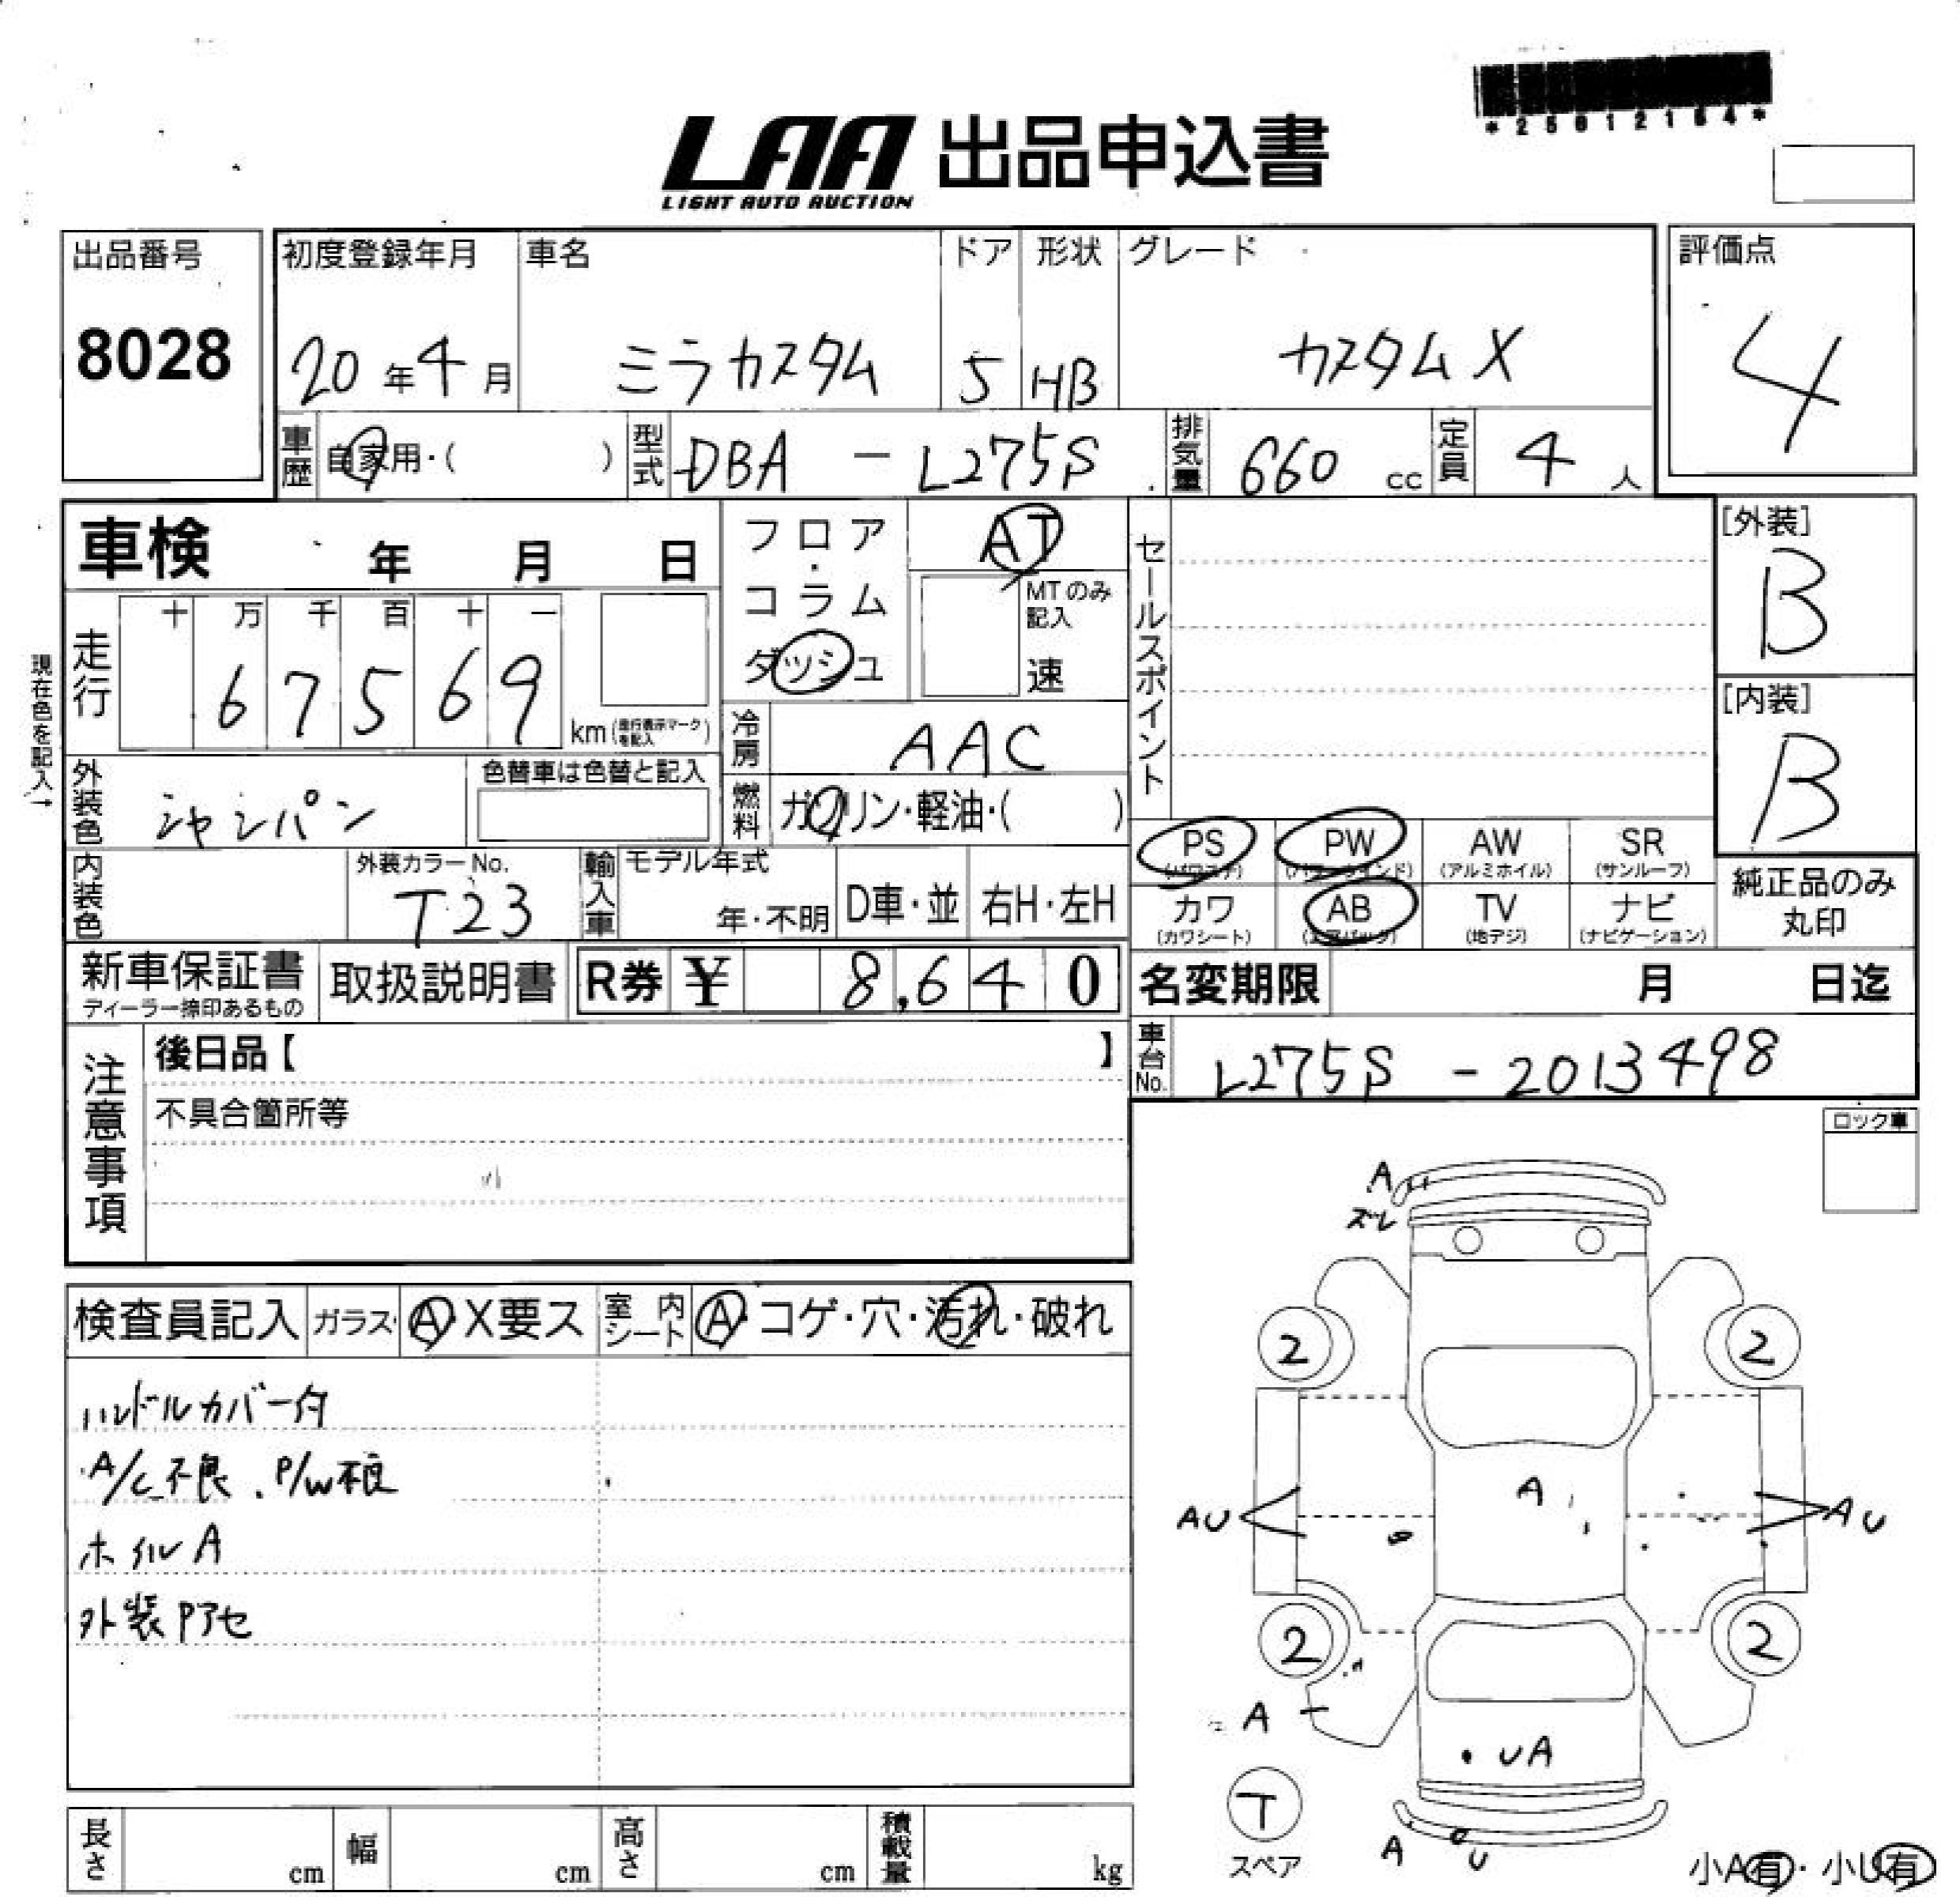 *25012164*
LAA 出品申込書
LIGHT AUTO AUCTION
出品番号 初度登録年月 車名 ドア 形状 グレード 評価点
8028 20年4月 ミラカスタム 5 HB カスタムX 4
車歴 自家用・( ) 型式 DBA - L275S 排気量 660 cc 定員 4 人
車検 年 月 日
フロア・コラム ダッシュ
AT
MTのみ記入
速
セールスポイント
[外装]
B
[内装]
B
現在色を記入→
走行 十 万 千 百 十 一
6 7 5 6 9 km (走行表示マークを記入)
冷房 AAC
外装色 シャンパン 色替車は色替と記入
燃料 ガソリン・軽油・( )
PS (パワステ) PW (パワーウインド) AW (アルミホイル) SR (サンルーフ)
カワ (カワシート) AB (エアバッグ) TV (地デジ) ナビ (ナビゲーション)
純正品のみ丸印
内装色 外装カラーNo. T23 輸入車 モデル年式 年・不明 D車・並 右H・左H
新車保証書 ディーラー捺印あるもの 取扱説明書 R券 ¥ 8,640
名変期限 月 日迄
車台No. L275S - 2013498
注意事項
後日品【 】
不具合箇所等
ロック車
検査員記入 ガラス A・X要ス 室内シート A・コゲ・穴・汚れ・破れ
ハンドルカバー付
A/C不良、P/W不良
ホイルA
外装Pアセ
A
ズレ
2 2
A
AU AU
2 2
A
UA
T
スペア
A U
小A有・小U有
長さ cm 幅 cm 高さ cm 積載量 kg